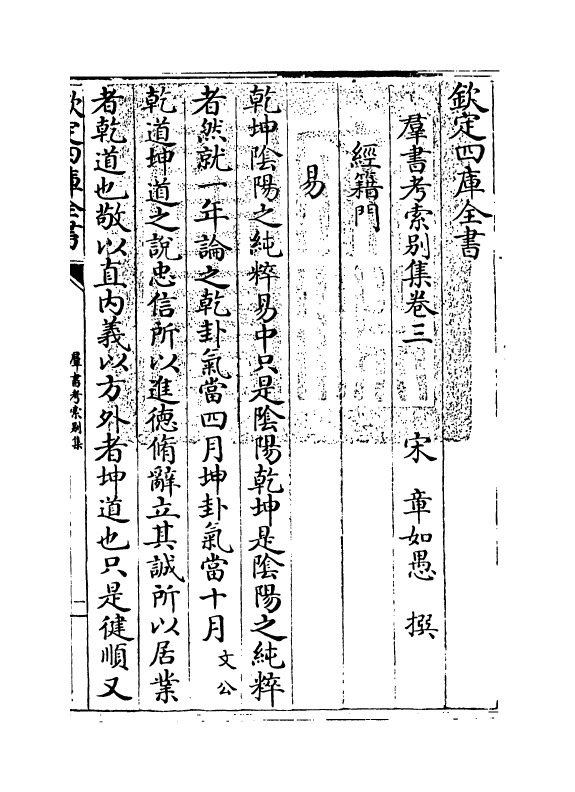 欽定四庫全書
羣書考索别集卷三 宋 章如愚 撰
經籍門
易
乾坤陰陽之純粹易中只是陰陽乾坤是陰陽之純粹
者然就一年論之乾卦氣當四月坤卦氣當十月文公
乾道坤道之說忠信所以進徳脩辭立其誠所以居業
者乾道也敬以直内義以方外者坤道也只是健順又
欽定四庫全書
羣書考索别集